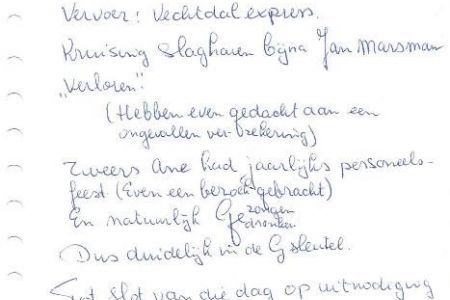 Vervoer: Vechtdal express.
Kruising Slagharen bijna Jan Marsman
„Verloren".
(Hebben even gedacht aan een
ongevallen verzekering)
Zweers Ane had jaarlijks personeels-
feest (Even een bezoek gebracht)
En natuurlijk Ge zongen
dronken.
Dus duidelijk in de G sleutel.
slot van die dag op uitnodiging